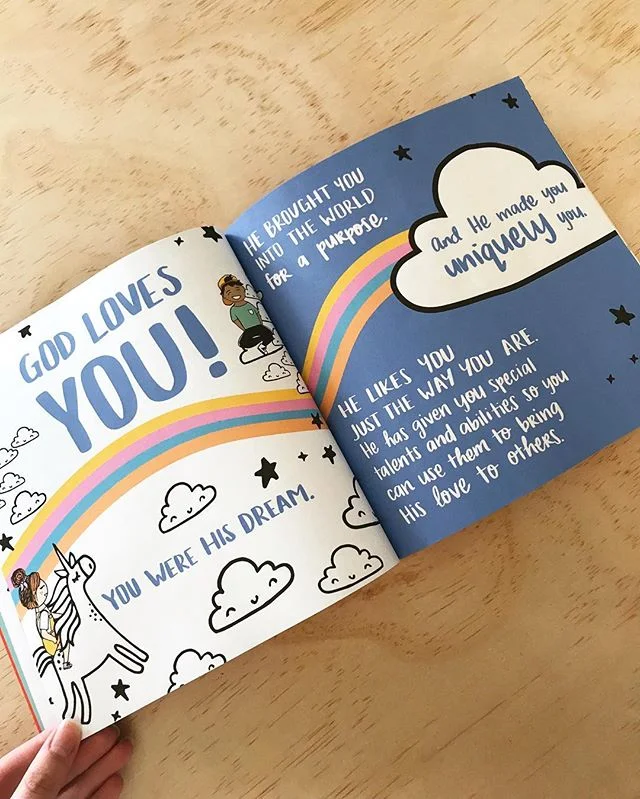 GOD LOVES
YOU!
YOU WERE HIS DREAM.
HE BROUGHT YOU
INTO THE WORLD
for a purpose.
And He made you
uniquely you.
HE LIKES YOU
JUST THE WAY YOU ARE.
He has given you special
talents and abilities so you
can use them to bring
His love to others.